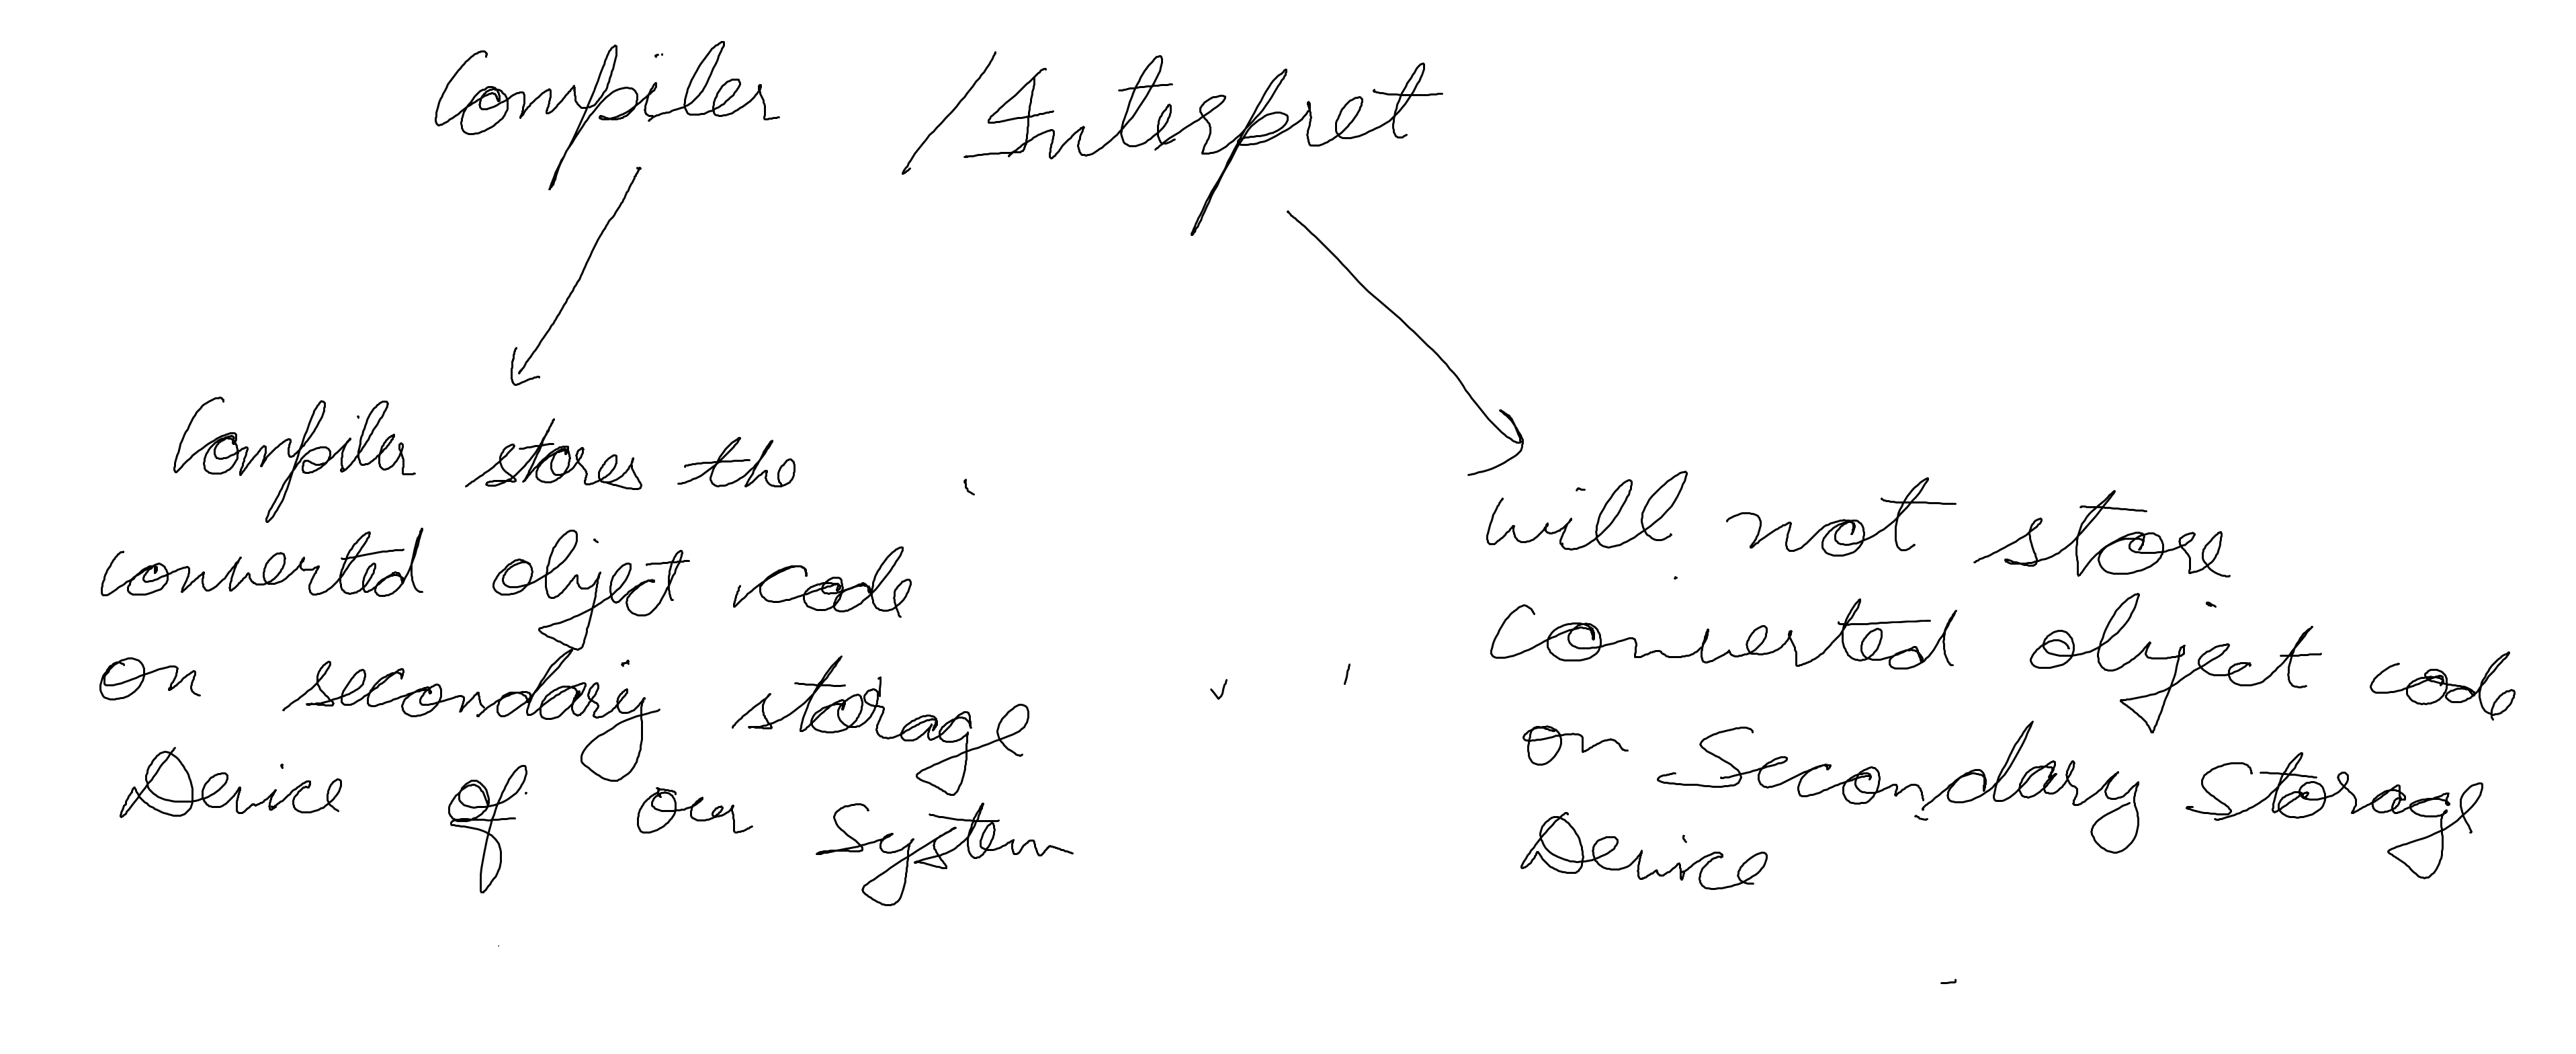 Compiler / Interpret
Compiler stores the
converted object code
on secondary storage
Device of our System
will not store
converted object code
on Secondary Storage
Device